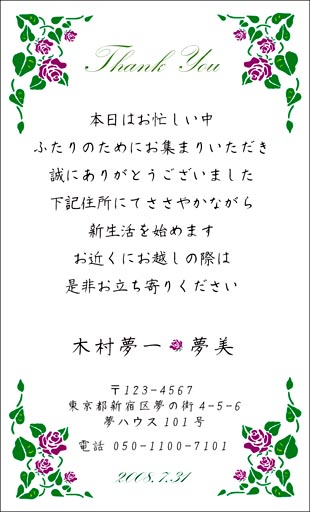 Thank You
本日はお忙しい中
ふたりのためにお集まりいただき
誠にありがとうございました
下記住所にてささやかながら
新生活を始めます
お近くにお越しの際は
是非お立ち寄りください
木村夢一 夢美
〒123-4567
東京都新宿区夢の街4-5-6
夢ハウス101号
電話 050-1100-7101
2008.7.31